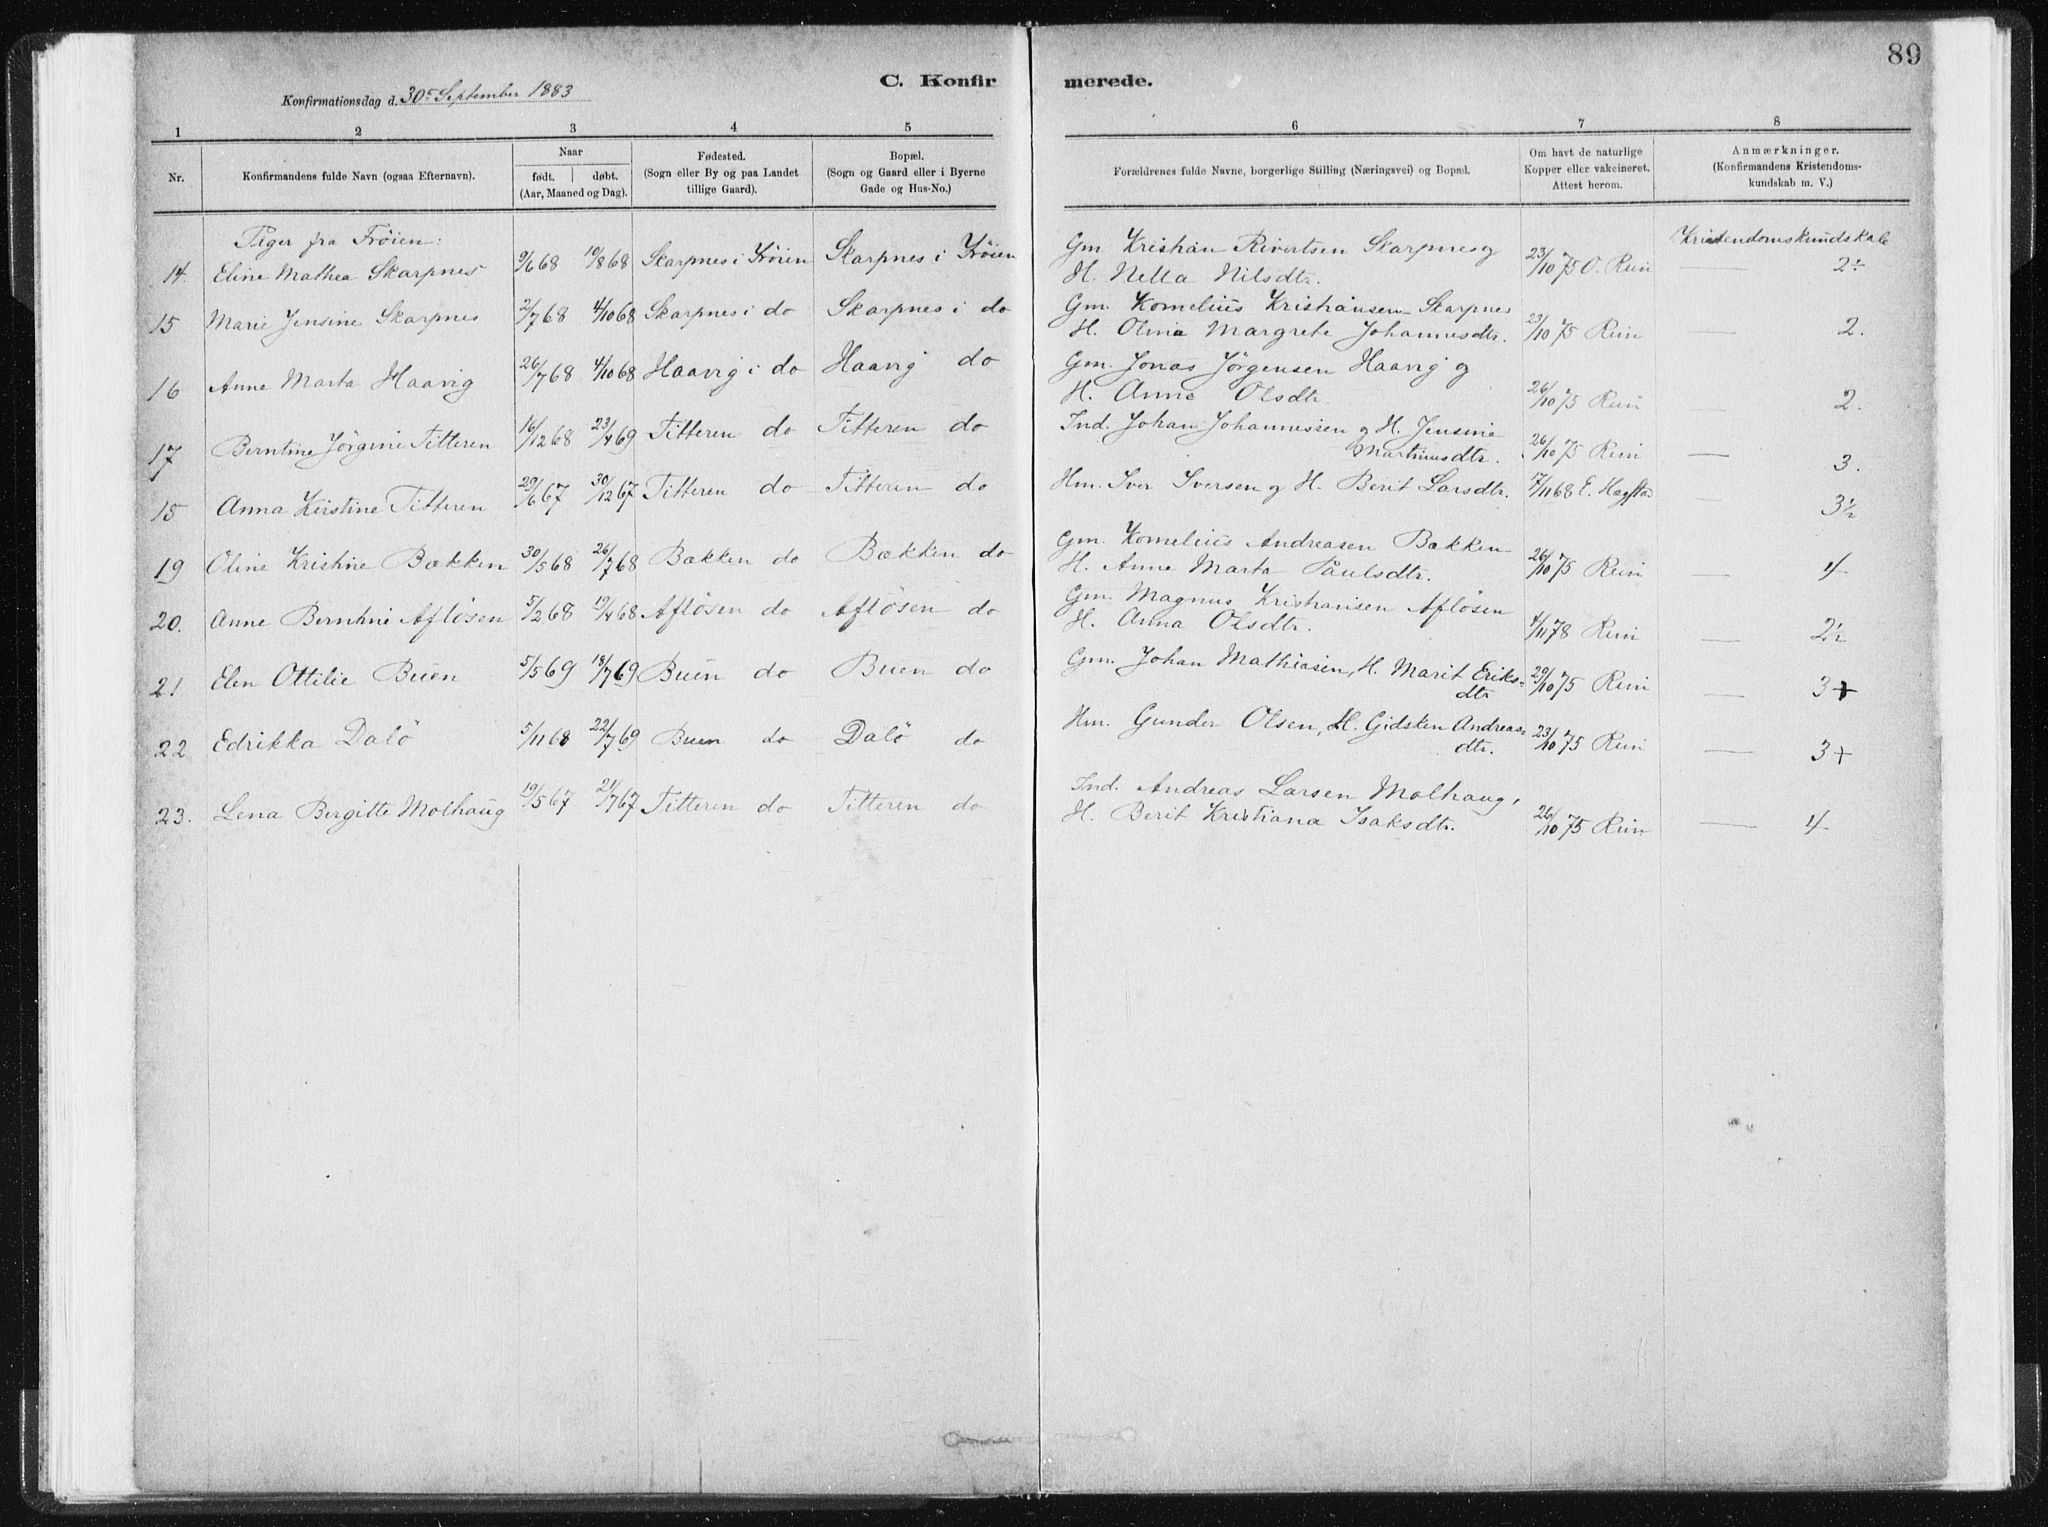 89
C. Konfirmerede.
Konfirmationsdag d. 30r September 1883
1 2 3 4 5 6 7 8
Nr. Konfirmandens fulde Navn (ogsaa Efternavn). Naar født. døbt. (Aar, Maaned og Dag). Fødested. (Sogn eller By og paa Landet tillige Gaard). Bopæl. (Sogn og Gaard eller i Byerne Gade og Hus-No.) Forældrenes fulde Navne, borgerlige Stilling (Næringsvei) og Bopæl. Om havt de naturlige Kopper eller vakcineret. Attest herom. Anmærkninger. (Konfirmandens Kristendomskundskab m. V.)
Piger fra Frøien: Kristendomskundskab
14. Eline Mathea Skarpnes 9/6 68 19/8 68 Skarpnes i Frøien Skarpnes i Frøien Gm. Kristian Rivertsen Skarpnes og
H. Nella Nilsdtr. 23/10 75 O. Rein — 2÷
15 Marie Jensine Skarpnes 2/7 68 4/10 68 Skarpnes i do Skarpnes i do Gm. Kornelius Kristiansen Skarpnes
H. Olina Margrete Johannesdtr. 23/10 75 Rein — 2.
16 Anne Marta Haavig 26/7 68 4/10 68 Haavig i do Haavig do Gm. Jonas Jørgensen Haavig og
H. Anne Olsdtr. 26/10 75 Rein — 2.
17 Berntine Jørgine Titteren 16/12 68 23/4 69 Titteren do Titteren do Ind. Johan Johannessen og H. Jensine
Martinusdtr. 26/10 75 Rein — 3.
15 Anna Kirstine Titteren 29/6 67 30/12 67 Titteren do Titteren do Hm. Iver Iversen og H. Berit Larsdtr. 17/11 68 E. Hagstad — 3½
19 Oline Kristine Bækken 30/5 68 26/7 68 Bækken do Bækken do Gm. Kornelius Andreasen Bækken
H. Anne Marta Paulsdtr. 26/10 75 Rein — 4
20. Anne Berntine Afløsen 5/2 68 19/4 68 Afløsen do Afløsen do Gm. Magnus Kristiansen Afløsen
H. Anna Olsdtr. 4/11 78 Rein — 2½
21 Elen Ottilie Buen 5/5 69 18/7 69 Buen do Buen do Gm. Johan Mathiasen, H. Marit Eriks=
dtr 29/10 75 Rein — 3+
22 Edrikka Dalø 5/11 68 22/7 69 Buen do Dalø do Hm. Gunder Olsen, H. Gidsken Andreas=
dtr. 23/10 75 Rein — 3+
23. Lena Bergitte Molhaug 19/5 67 21/7 67 Titteren do Titteren do Ind. Andreas Larsen Molhaug,
H. Berit Kristiana Isaksdtr. 26/10 75 Rein — 4